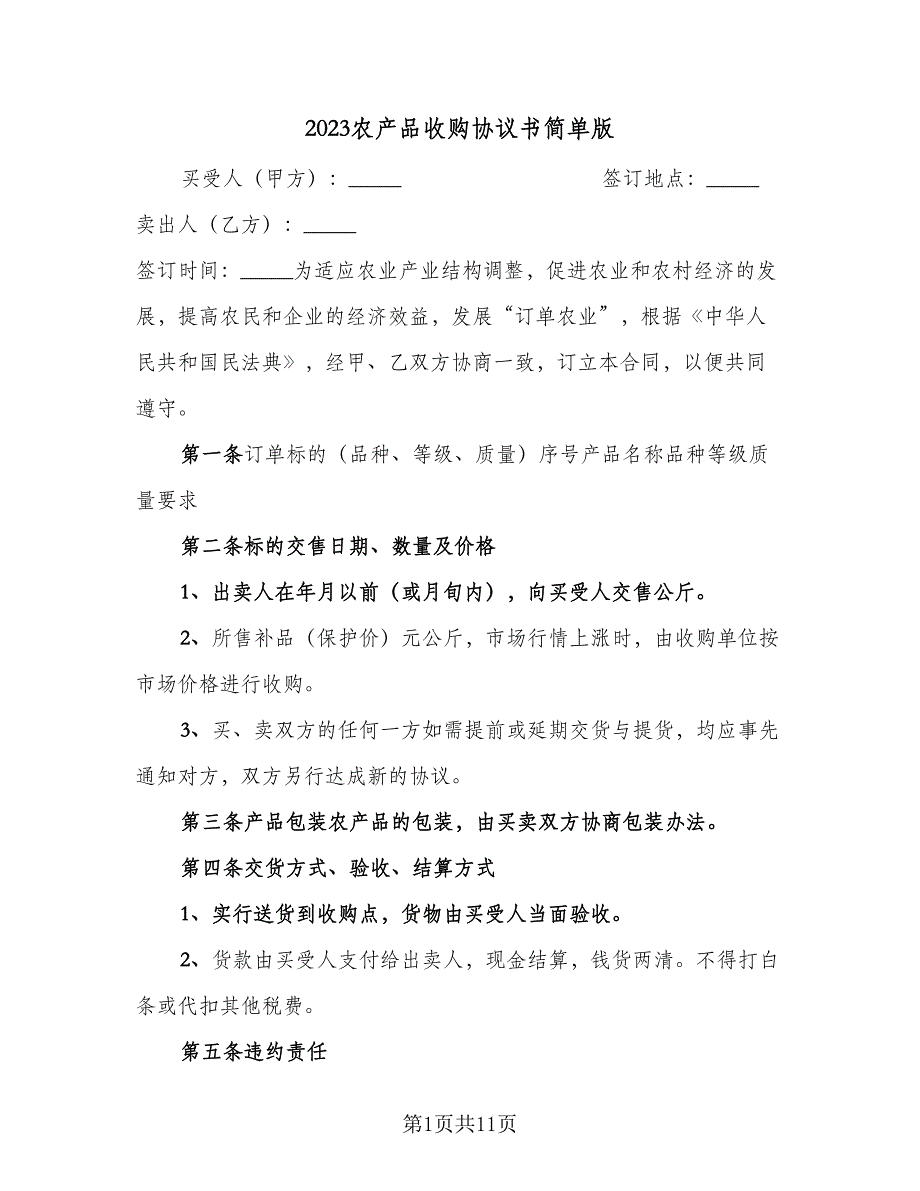 2023农产品收购协议书简单版
买受人（甲方）：_____ 签订地点：_____
卖出人（乙方）：_____
签订时间：_____为适应农业产业结构调整，促进农业和农村经济的发
展，提高农民和企业的经济效益，发展“订单农业”，根据《中华人
民共和国民法典》，经甲、乙双方协商一致，订立本合同，以便共同
遵守。
第一条订单标的（品种、等级、质量）序号产品名称品种等级质
量要求
第二条标的交售日期、数量及价格
1、出卖人在年月以前（或月旬内），向买受人交售公斤。
2、所售补品（保护价）元公斤，市场行情上涨时，由收购单位按
市场价格进行收购。
3、买、卖双方的任何一方如需提前或延期交货与提货，均应事先
通知对方，双方另行达成新的协议。
第三条产品包装农产品的包装，由买卖双方协商包装办法。
第四条交货方式、验收、结算方式
1、实行送货到收购点，货物由买受人当面验收。
2、货款由买受人支付给出卖人，现金结算，钱货两清。不得打白
条或代扣其他税费。
第五条违约责任
第1页共11页